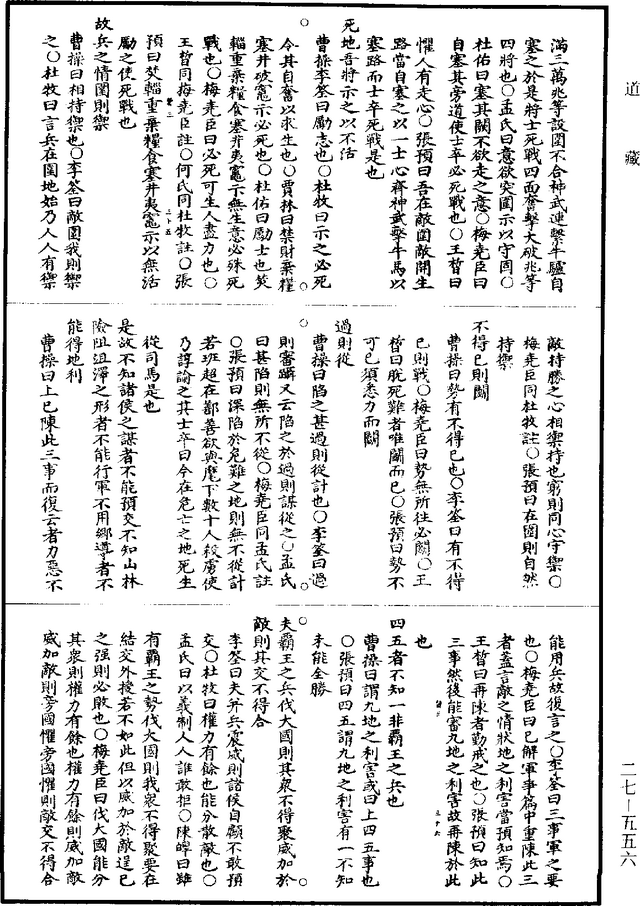 道藏
滿三萬兆等設圍不合神武連繫牛驢自
塞之於是將士死戰四面奮擊大破兆等
四將也○孟氏曰意欲突圍示以守固○
杜佑曰塞其闕不欲走之意○梅堯臣曰
自塞其旁道使士卒必死戰也○王晳曰
懼人有走心○張預曰吾在敵圍敵開生
路當自塞之以一士心齊神武繫牛馬以
塞路而士卒死戰是也
死地吾將示之以不活
曹操李筌曰勵志也○杜牧曰示之必死
令其自奮以求生也○賈林曰禁財棄糧
塞井破竈示必死也○杜佑曰勵士也焚
輜重棄糧食塞井夷竈示無生意必殊死
戰也○梅堯臣曰必死可生人盡力也○
王晳同梅堯臣註○何氏同杜牧註○張
預曰焚輜重棄糧食塞井夷竈示以無活
勵之使死戰也
故兵之情圍則禦
曹操曰相持禦也○李筌曰敵圍我則禦
之○杜牧曰言兵在圍地始乃人人有禦
敵持勝之心相禦持也窮則同心守禦○
梅堯臣同杜牧註○張預曰在圍則自然
持禦
不得已則鬭
曹操曰勢有不得已也○李筌曰有不得
已則戰○梅堯臣曰勢無所往必鬭○王
晳曰脫死難者唯鬭而已○張預曰勢不
可已須悉力而鬭
過則從
曹操曰陷之甚過則從計也○李筌曰過
則審躡又云陷之於過則謀從之○孟氏
曰甚陷則無所不從○梅堯臣同孟氏註
○張預曰深陷於危難之地則無不從計
若班超在鄯善欲與麾下數十人殺虜使
乃諄諭之其士卒曰今在危亡之地死生
從司馬是也
是故不知諸侯之謀者不能預交不知山林
險阻沮澤之形者不能行軍不用鄉導者不
能得地利
曹操曰上已陳此三事而復云者力惡不
能用兵故復言之○李筌曰三事軍之要
也○梅堯臣曰已解軍爭篇中重陳此三
者蓋言敵之情狀地之利害當預知焉○
王晳曰再陳者勤戒之也○張預曰知此
三事然後能審九地之利害故再陳於此
也
四五者不知一非霸王之兵也
曹操曰謂九地之利害或曰上四五事也
○張預曰四五謂九地之利害有一不知
未能全勝
夫霸王之兵伐大國則其衆不得聚威加於
敵則其交不得合
李筌曰夫并兵震威則諸侯自顧不敢預
交○杜牧曰權力有餘也能分散敵也○
孟氏曰以義制人人誰敢拒○陳皥曰雖
有霸王之勢伐大國則我衆不得聚要在
結交外援若不如此但以威加於敵逞已
之强則必敗也○梅堯臣曰伐大國能分
其衆則權力有餘也權力有餘則威加敵
威加敵則旁國懼旁國懼則敵交不得合
二七—五五六